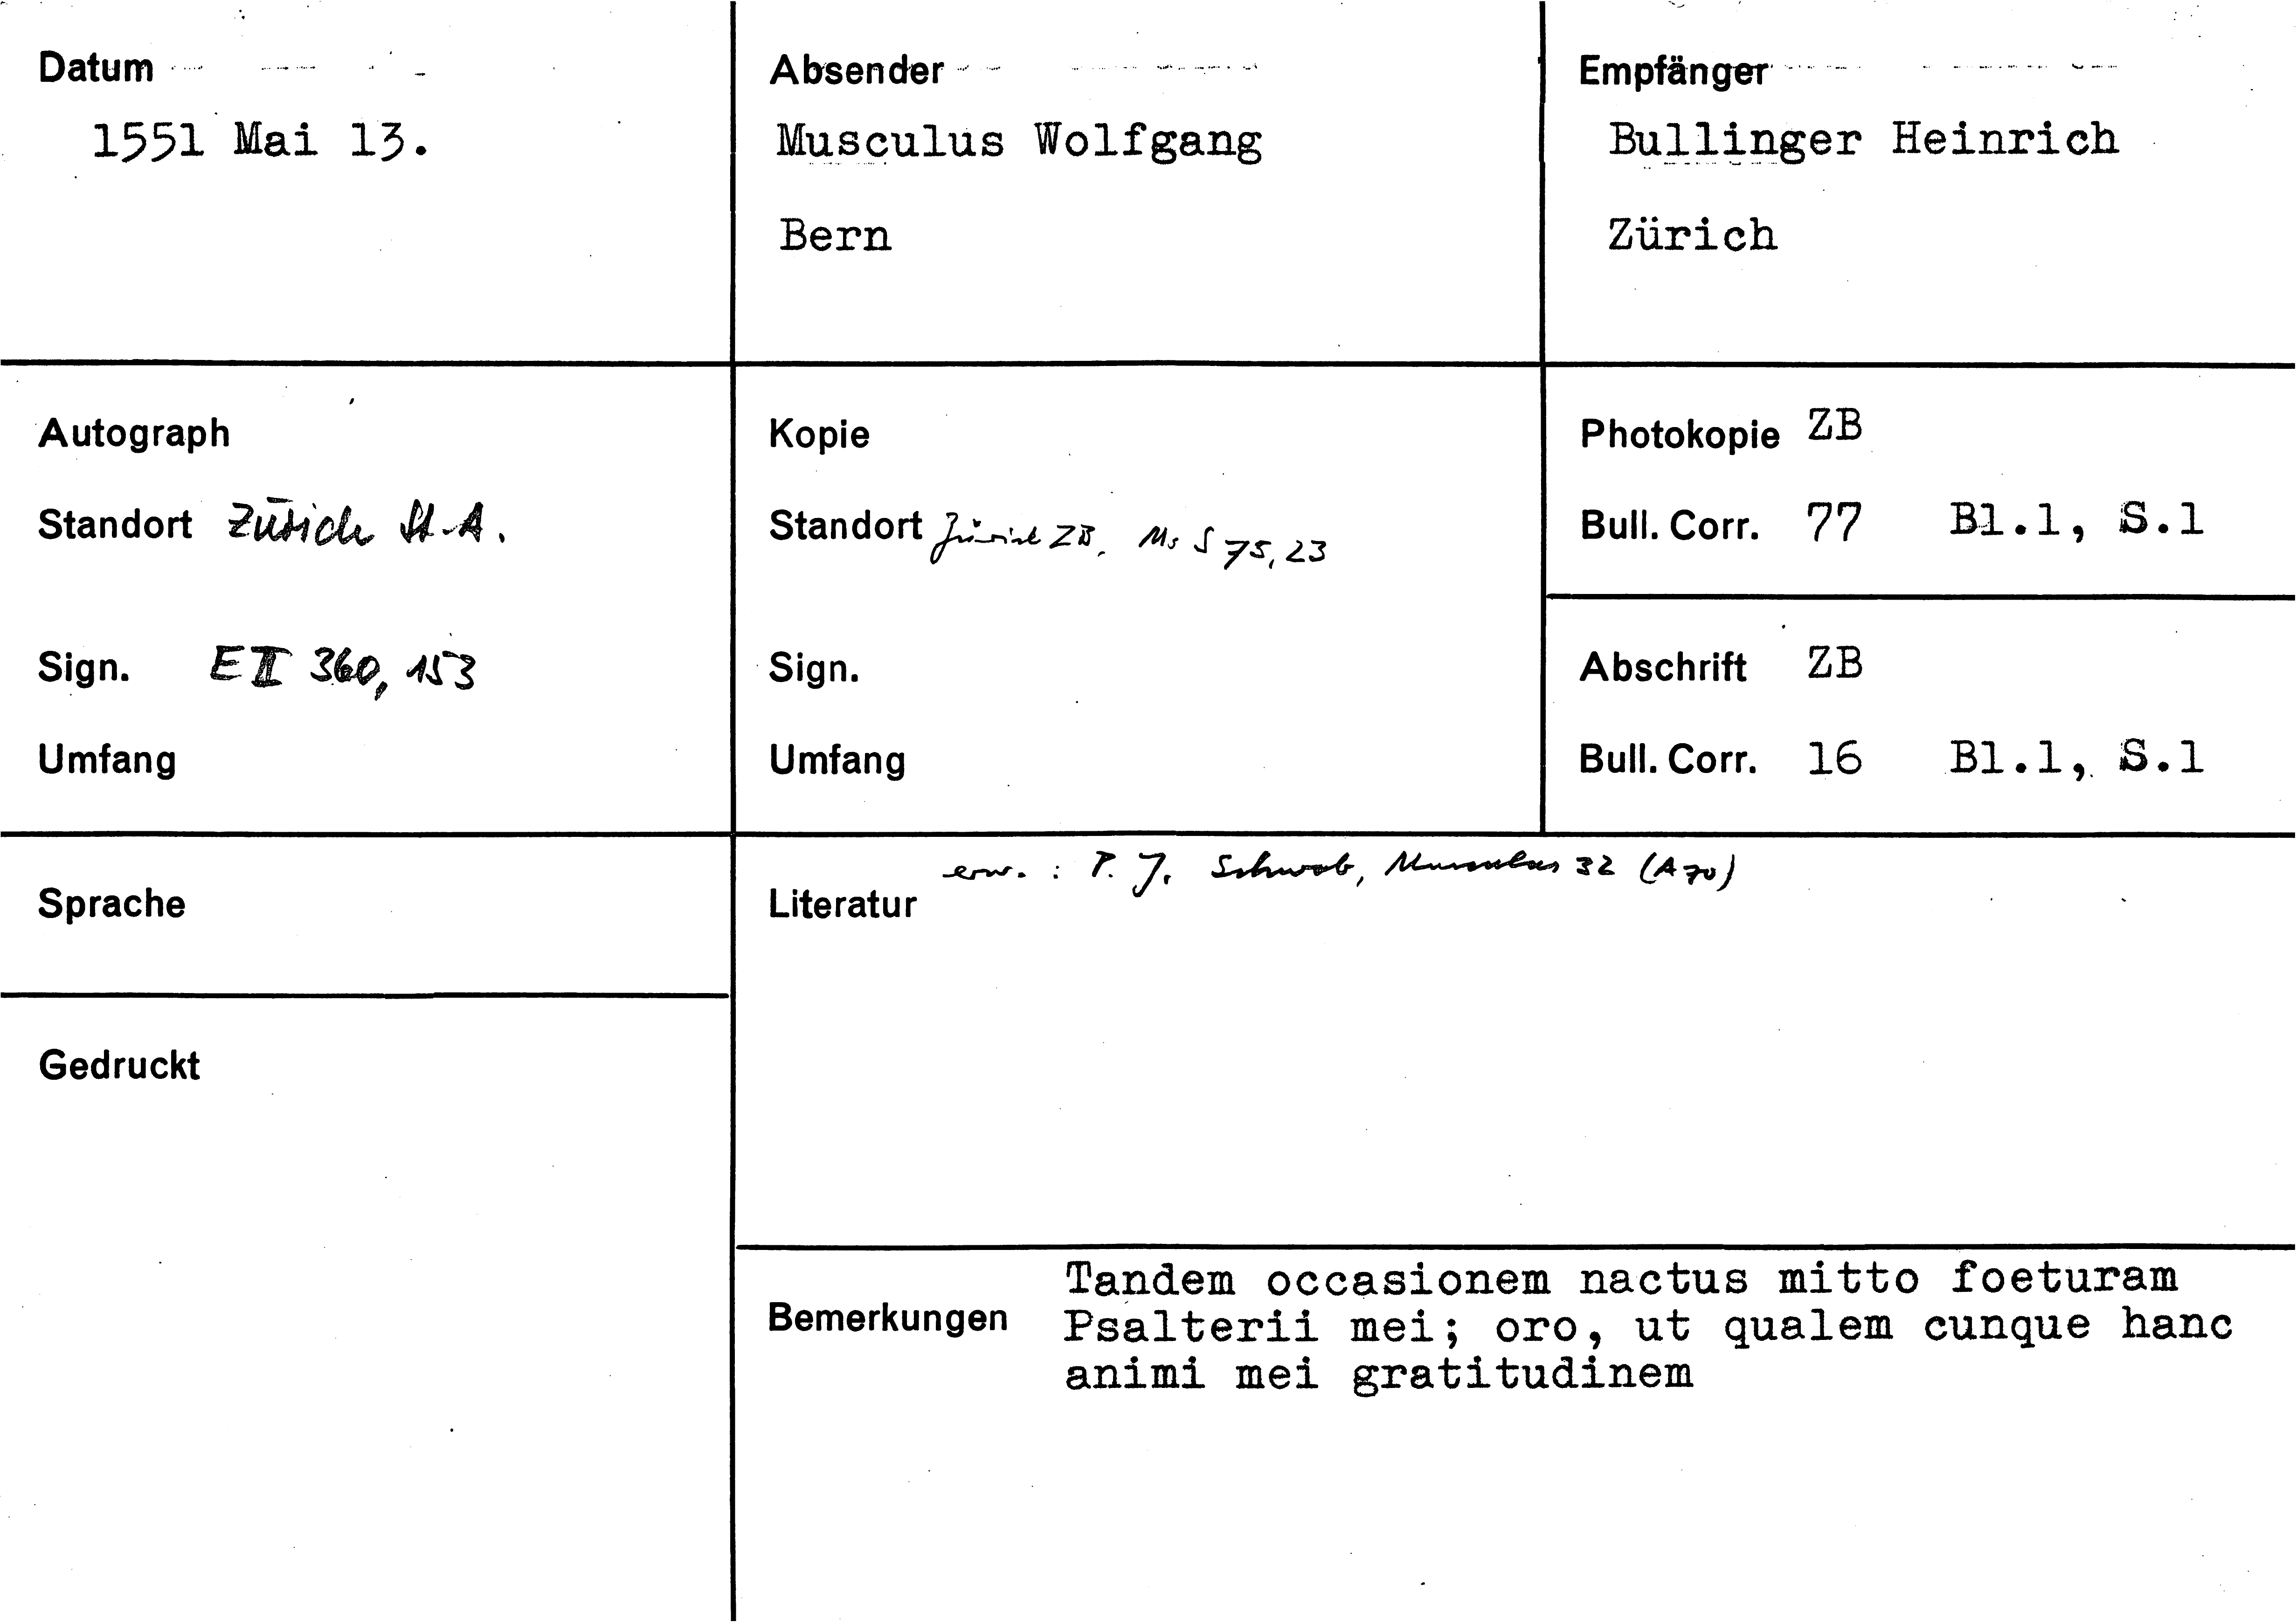 Datum
1551 Mai 13.
Absender
Musculus Wolfgang
Bern
Empfänger
Bullinger Heinrich
Zürich
Autograph
Standort Zürich St.A.
Sign. E II 360, 153
Umfang
Kopie
Standort Zürich ZB, Ms S 75, 23
Sign.
Umfang
Photokopie ZB
Bull. Corr. 77 Bl.1, S.1
Abschrift ZB
Bull. Corr. 16 Bl.1, S.1
Sprache
Gedruckt
Literatur erw. : P. J. Schwab, Musculus 32 (A70)
Bemerkungen
Tandem occasionem nactus mitto foeturam
Psalterii mei; oro, ut qualem cunque hanc
animi mei gratitudinem